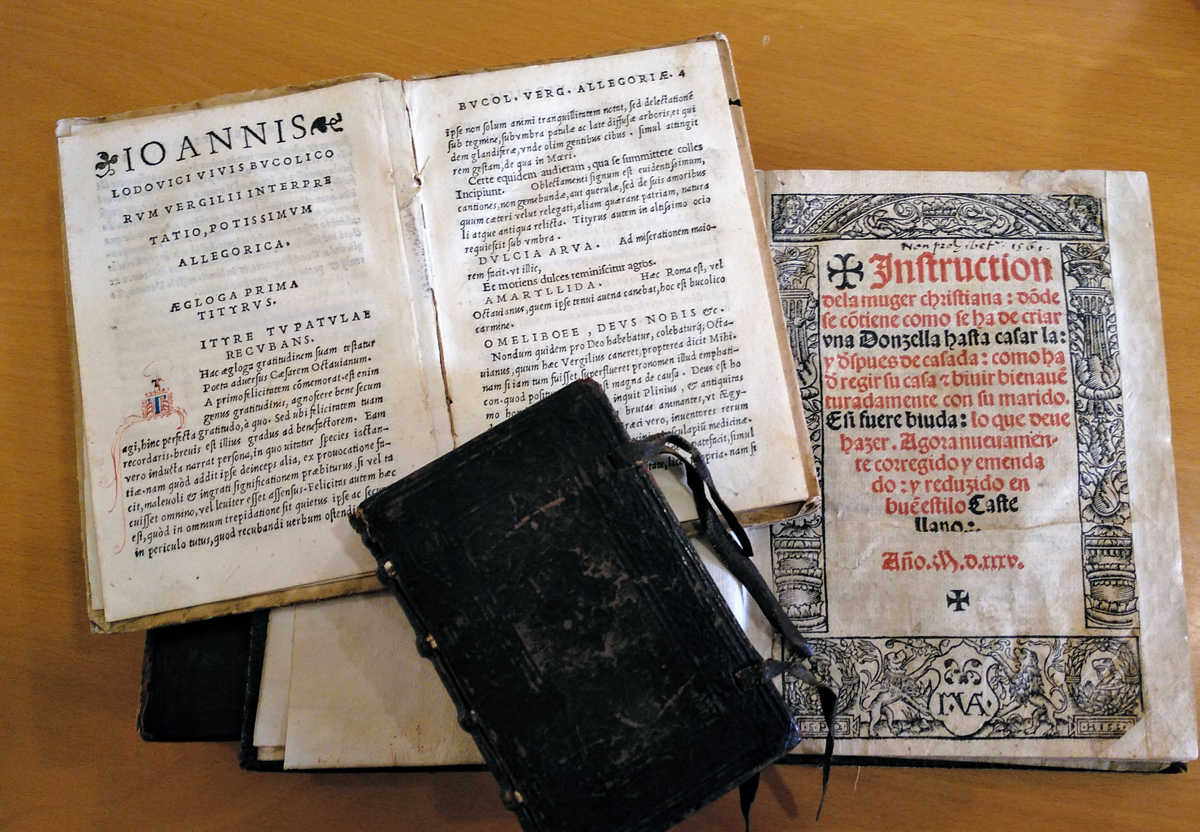 IOANNIS
LODOVICI VIVIS BVCOLICO
RVM VERGILII INTERPRE
TATIO, POTISSIMVM
ALLEGORICA.
ÆGLOGA PRIMA
TITYRVS.
ITYRE TV PATVLAE
RECVBANS.
Hac ægloga gratitudinem suam testatur
Poeta aduersus Cæsarem Octauianum.
A primo felicitatem cōmemorat. est enim
genus gratitudinis, agnoscere bene secum
agi, hinc perfecta gratitudo, à quo. Sed ubi felicitatem tuam
recordaris. breuis est illius gradus ad benefactorem. Eam
vero inducta narrat persona, in quo uitatur species iactan-
tiæ. nam quòd addit ipse deinceps alia, ex prouocatione fa-
cit, maleuoli & ingrati significationem præbiturus, si vel ta
cuisset omnino, vel leuiter esset assensus. Felicitas autem hæc
est, quòd in omnium trepidatione sit quietus ipse ac
in periculo tutus, quod recubandi uerbum
BVCOL. VERG. ALLEGORIÆ. 4
ipse non solum animi tranquillitatem notat, sed delectationē
sub tegmine, sub vmbra patulæ ac late diffusæ arboris, et qui
dem glandiferæ, vnde olim gentibus cibus. simul attingit
rem gestam, de qua in Mœri.
Certe equidem audieram, qua se summittere colles
Incipiunt. Oblectamenti signum est euidentissimum,
cantiones, non gemebundæ, aut querulæ, sed de suis amoribus
quum cæteri velut relegati, aliam quærant patriam, natura
li atque antiqua relicta. Tityrus autem in altissimo ocio
requiescit sub vmbra.
DVLCIA ARVA. Ad miserationem maio-
rem facit. vt illic,
Et moriens dulces reminiscitur agros.
AMARYLLIDA. Hæc Roma est, vel
Octauianus, quem ipse tenui auena canebat, hoc est bucolico
carmine.
O MELIBOEE, DEVS NOBIS &c.
Nondum quidem pro Deo habebatur, colebaturq; Octa-
uianus, quum hæc Vergilius caneret, propterea dicit Mihi.
nam si iam tum fuisset, superflueret pronomen illud emphati-
con. quod est magna de causa. Deus est ho
mo inquit Plinius, & antiquitas
brutas animantes, vt Ægy-
ræci vero, inuentores rerum
sculapiũ medicinæ.
patefacit, simul
propria. nam si
Non prohibet 1561
Instruction
dela muger christiana: dōde
se cōtiene como se ha de criar
vna Donzella hasta casar la:
y dspues de casada: como ha
d regir su casa & biuir bienauē
turadamente con su marido.
Eñ fuere biuda: lo que deue
hazer. Agora nueuamen-
te corregido y emenda
do: y reduzido en
buē estilo Caste
llano.
Año. M.d.xxxv.
I.VA.